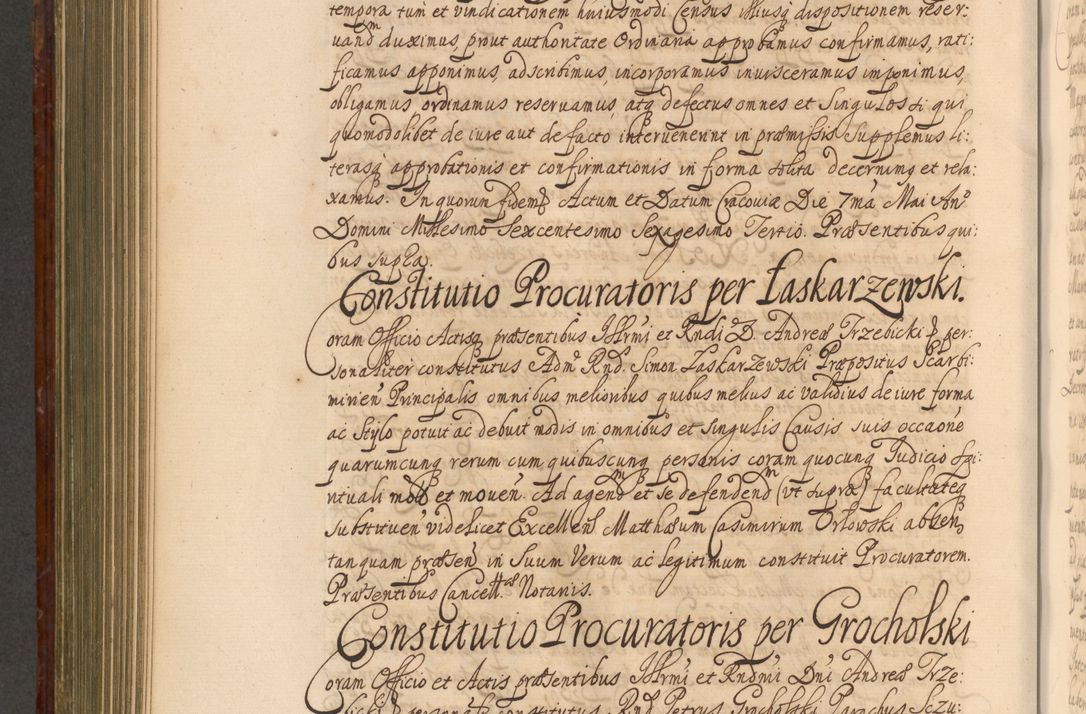 tempora tum et vindicationem huiusmodi Census illiusq dispositionem reser:
uand duximus, prout authoritate Ordinaria approbamus confirmamus, rati:
ficamus apponimus, adscribimus, incorporamus inuisceramus imponimus,
obligamus ordinamus reseruamus, atq defectus omnes et Singulos si qui
quomodolibet de iure aut de facto interuenerint in præmissis Supplemus li:
terasq approbationis et confirmationis in forma solita decernimq et rela:
xamus. In quorum fidem Actum et Datum Cracoviæ Die 7ma Mai An°
Domini Millesimo Sexcentesimo Sexagesimo Tertio. Præsentibus qui:
bus supra.
Constitutio Procuratoris per Łaskarzewski.
Coram Officio Actisq præsentibus Illrmi et Rndi D. Andreæ Trzebicki per:
sonaliter constitutus Adm Rnd. Simon Łaskarzewski Præpositus Scarbi:
mirien Principalis omnibus melioribus quibus melius ac validius de iure forma
ac Stylo potuit ac debuit modis in omnibus et singulis Causis suis occaone
quarumcunq rerum cum quibuscunq personis coram quocunq Iudicio Spi:
rituali et mouen. Ad agend et se defendend (vt supra) facultateq
substituen videlicet Excellen Matthæum Casimirum Orłowski absen
tanquam præsen in Suum Verum ac legitimum constituit Procuratorem.
Præsentibus Cancell. Notariis.
Constitutio Procuratoris per Grocholski
Coram Officio et Actis præsentibus Illrmi et Rndmi Dni Andreæ Trze:
bicki constitutus Rnd Petrus Grocholski Parochus Sczu: